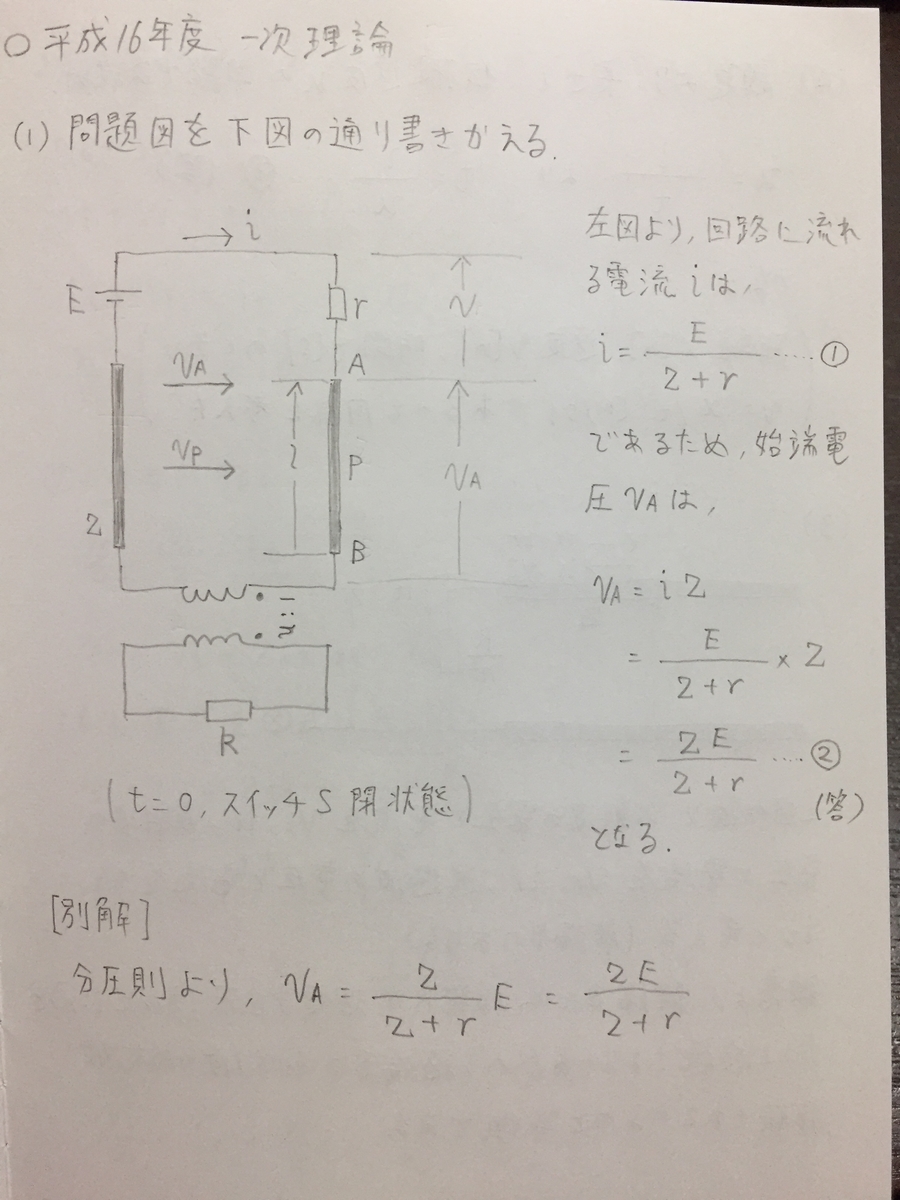 ○ 平成16年度 一次 理論
(1) 問題図を下図の通り書きかえる.
i
E
r
V
VA
A
VP
l
P
VA
Z
B
1:n
R
(t=0, スイッチS 閉状態)
左図より, 回路に流れ
る電流 i は,
i = E / (Z + r) ..... ①
であるため, 始端電
圧 VA は,
VA = i Z
= E / (Z + r) × Z
= ZE / (Z + r) .... ②
(答)
となる.
[別解]
分圧則より, VA = Z / (Z + r) E = ZE / (Z + r)